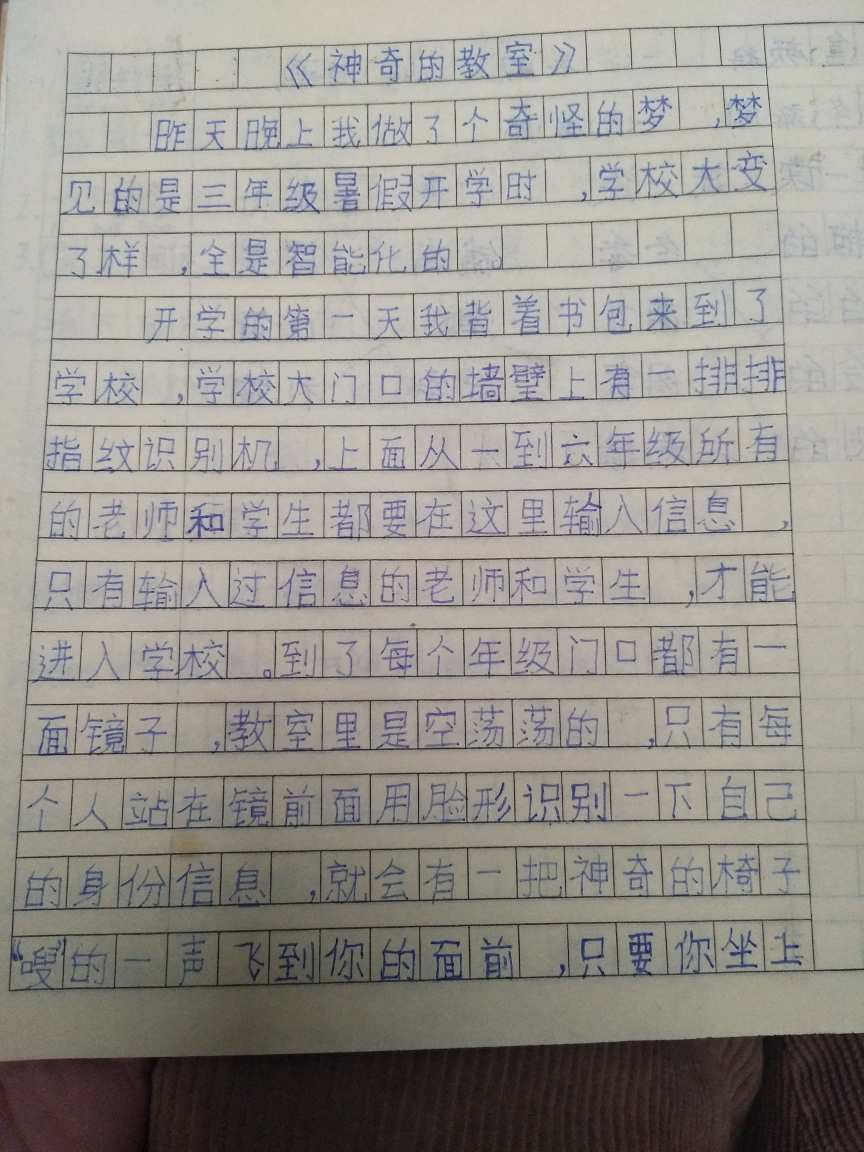 《神奇的教室》
昨天晚上我做了个奇怪的梦,梦
见的是三年级暑假开学时,学校大变
了样,全是智能化的。
开学的第一天我背着书包来到了
学校,学校大门口的墙壁上有一排排
指纹识别机,上面从一到六年级所有
的老师和学生都要在这里输入信息,
只有输入过信息的老师和学生,才能
进入学校。到了每个年级门口都有一
面镜子,教室里是空荡荡的,只有每
个人站在镜前面用脸形识别一下自己
的身份信息,就会有一把神奇的椅子
“嗖”的一声飞到你的面前,只要你坐上